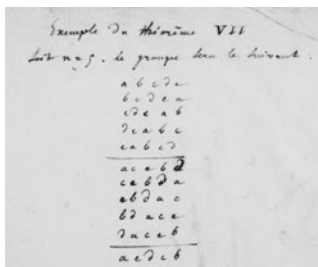 Exemple du théorème VII
Soit n=5, le groupe sera le suivant :
a b c d e
b c d e a
c d e a b
d e a b c
e a b c d
a c e b d
c e b d a
e b d a c
b d a c e
d a c e b
a e d c b